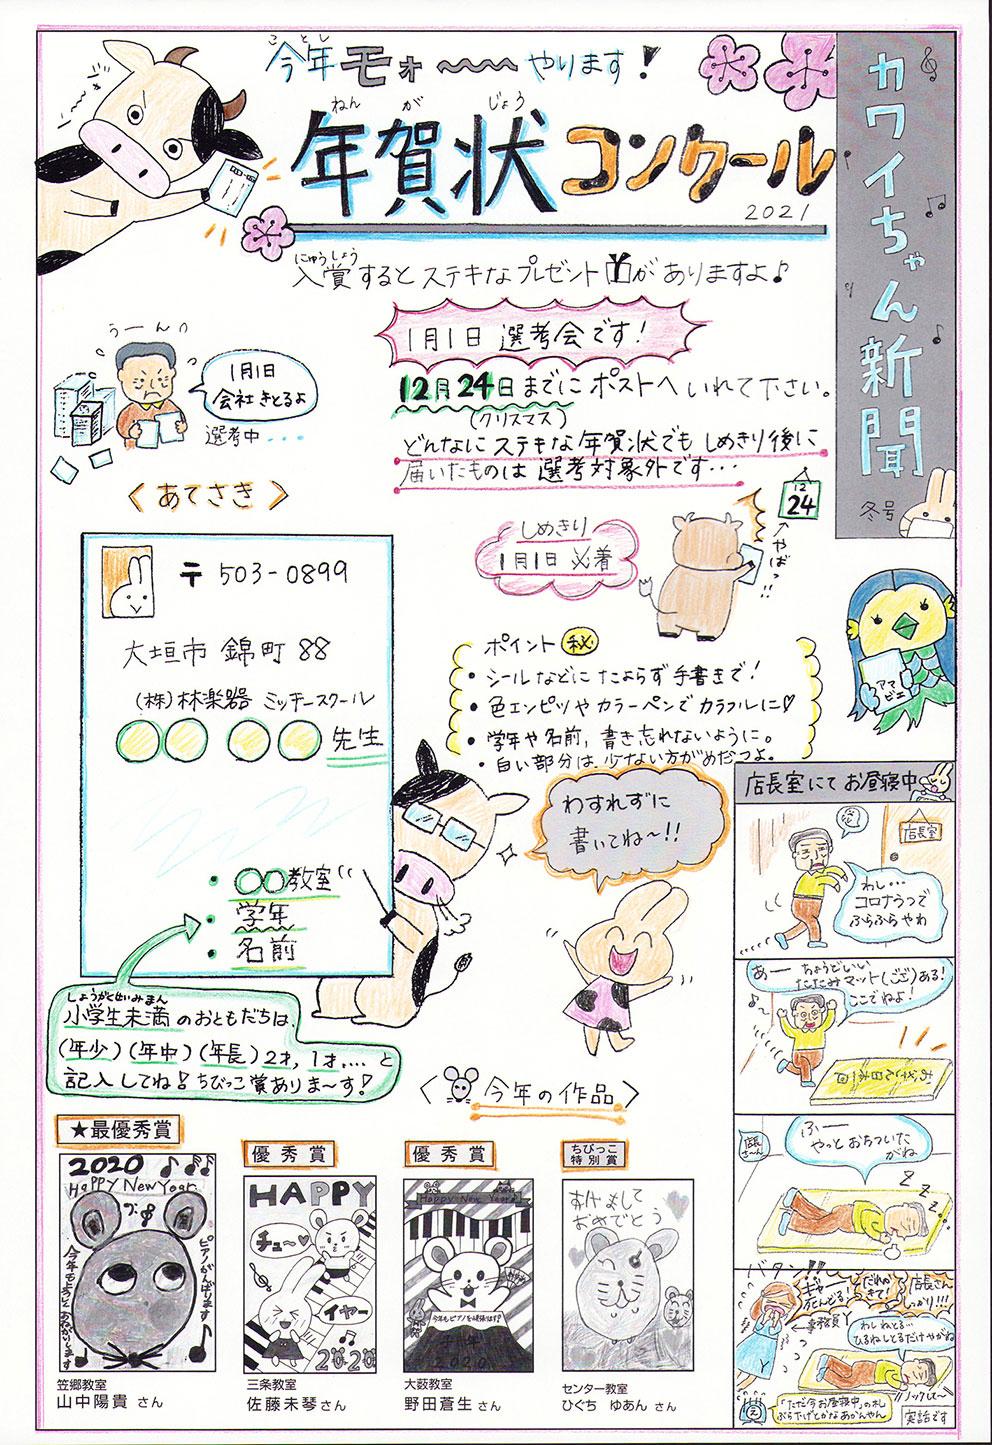 カワイちゃん新聞
冬号
ことし
今年モォ〜〜やります!
ねんがじょう
年賀状コンクール
2021
にゅうしょう
入賞するとステキなプレゼントがありますよ♪
うーん
1月1日
会社きとるよ
選考中・・・
1月1日 選考会です!
12月24日までにポストへいれて下さい。
(クリスマス)
どんなにステキな年賀状でもしめきり後に
届いたものは選考対象外です・・・
12
24
やばっ!!
しめきり
1月1日必着
〈あてさき〉
〒503-0899
大垣市 錦町 88
(株)林楽器 ミッチースクール
○○ ○○ 先生
・○○教室
・学年
・名前
ポイント ㊙
・シールなどにたよらず手書きで!
・色エンピツやカラーペンでカラフルに♡
・学年や名前,書き忘れないように。
・白い部分は少ない方がめだつよ。
アマビエ
わすれずに
書いてね〜!!
しょうがくせいみまん
小学生未満のおともだちは、
(年少)(年中)(年長)2才,1才,…と
記入してね!ちびっこ賞ありま〜す!
〈今年の作品〉
★最優秀賞
2020
Happy New Year
ピアノがんばります
今年もよろしくおねがいします
笠郷教室
山中陽貴 さん
優秀賞
HAPPY
チュ〜♡
イヤー
2020
三条教室
佐藤未琴さん
優秀賞
Happy New Year
今年もピアノを頑張ります!
2020
大薮教室
野田蒼生 さん
ちびっこ
特別賞
あけまして
おめでとう
センター教室
ひぐち ゆあん さん
店長室にてお昼寝中
店長室
わし…
コロナうつで
ふらふらやわ
あー ちょうどいい
たたみマット(ござ)ある!
ここでねよ!
店長さ〜ん
ふー
やっとおちついた
がね
ZZZ…
バタン!!
ギャー
死んどる!
だれかきて!
店長さん
しっかり!!!
←事務員Y
わしねとる…
ひるねしとるだけやがね
ノックして〜
「ただ今お昼寝中」の札
ぶら下げとかなあかんやん
実話です